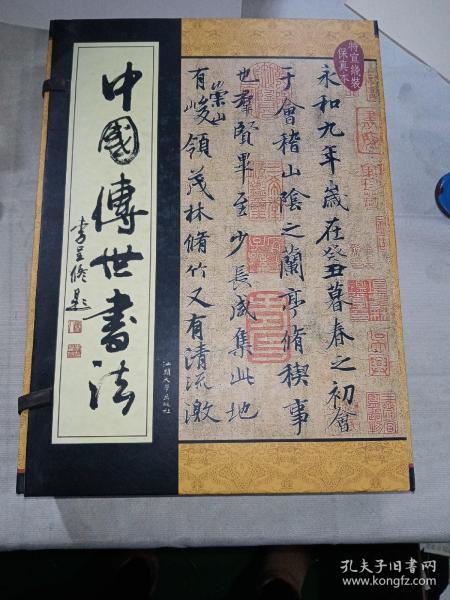 中國傳世書法
李呈修題
汕頭大學出版社
特宣线裝
保真本
永和九年歲在癸丑暮春之初會
于會稽山陰之蘭亭脩稧事
也羣賢畢至少長咸集此地
有崇山峻領茂林脩竹又有清流激
孔夫子旧书网
www.kongfz.com